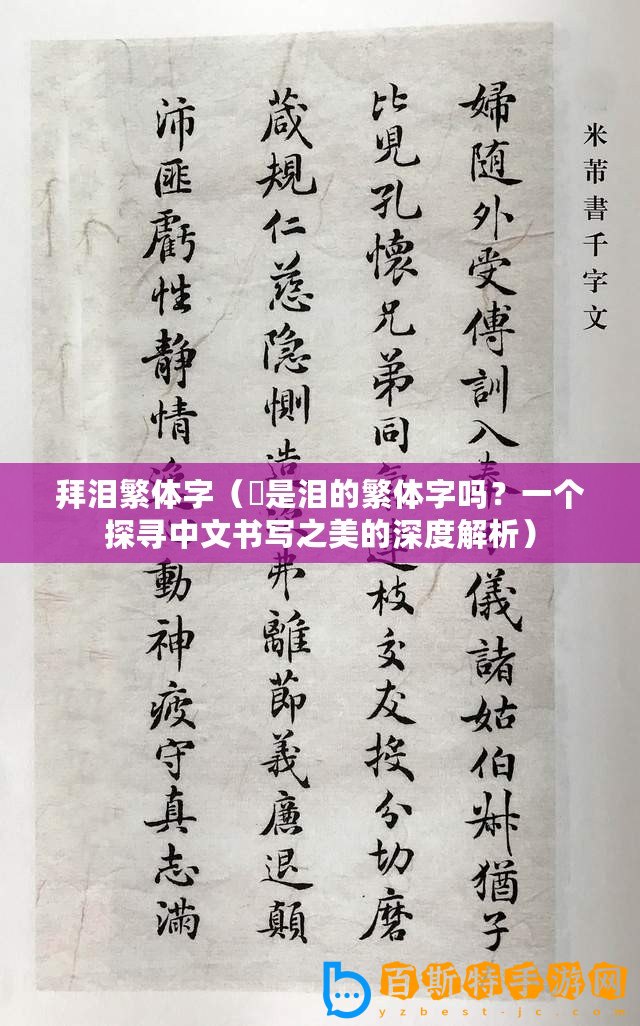 米芾書千字文
婦随外受傅訓入儀諸姑伯叔猶子
比兒孔懷兄弟同枝交友投分切磨
葴規仁慈隐惻造弗離節義廉退顛
沛匪虧性静情動神疲守真志滿
拜泪繁体字（是泪的繁体字吗？一个
探寻中文书写之美的深度解析）
百斯特手游网
yzbest-jc.com